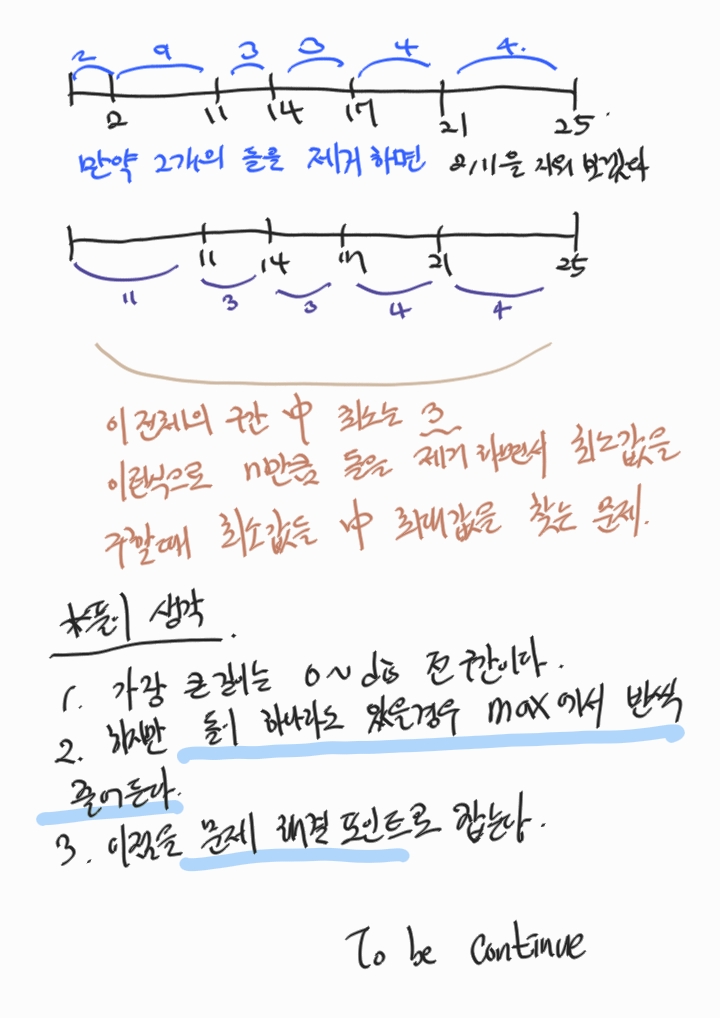 2 9 3 3 4 4.
2 11 14 17 21 25.
만약 2개의 돌을 제거 하면 2,11을 지워 보겠다
11 14 17 21 25
11 3 3 4 4
이 전체의 구간 中 최소는 3
이런식으로 n만큼 돌을 제거 하면서 최소값을
구할때 최소값들 中 최대값을 찾는 문제.
*풀이 생각.
1. 가장 큰 길이는 0~dis 전 구간이다.
2. 하지만 돌이 하나라도 있을경우 max에서 반씩
줄어 든다.
3. 이점을 문제 해결 포인트로 잡는다.
To be continue